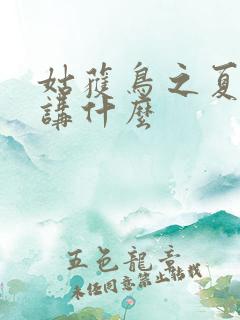 姑獲鳥之夏
講什麼
五色龍章
未經同意禁止轉載